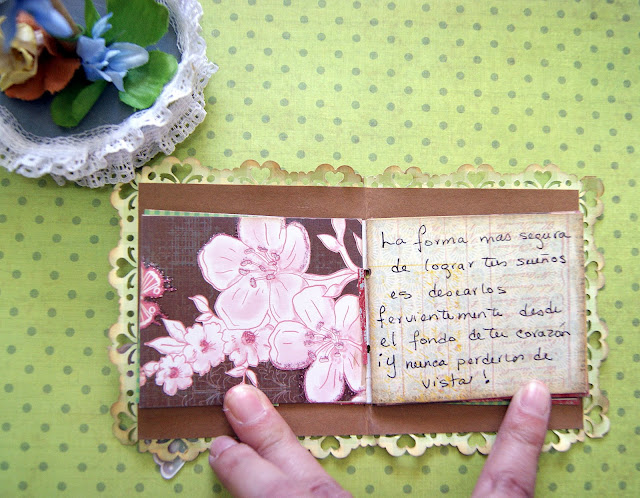 La forma mas segura
de lograr tus sueños
es desearlos
fervientemente desde
el fondo de tu corazón
¡Y nunca perderlos de
vista!